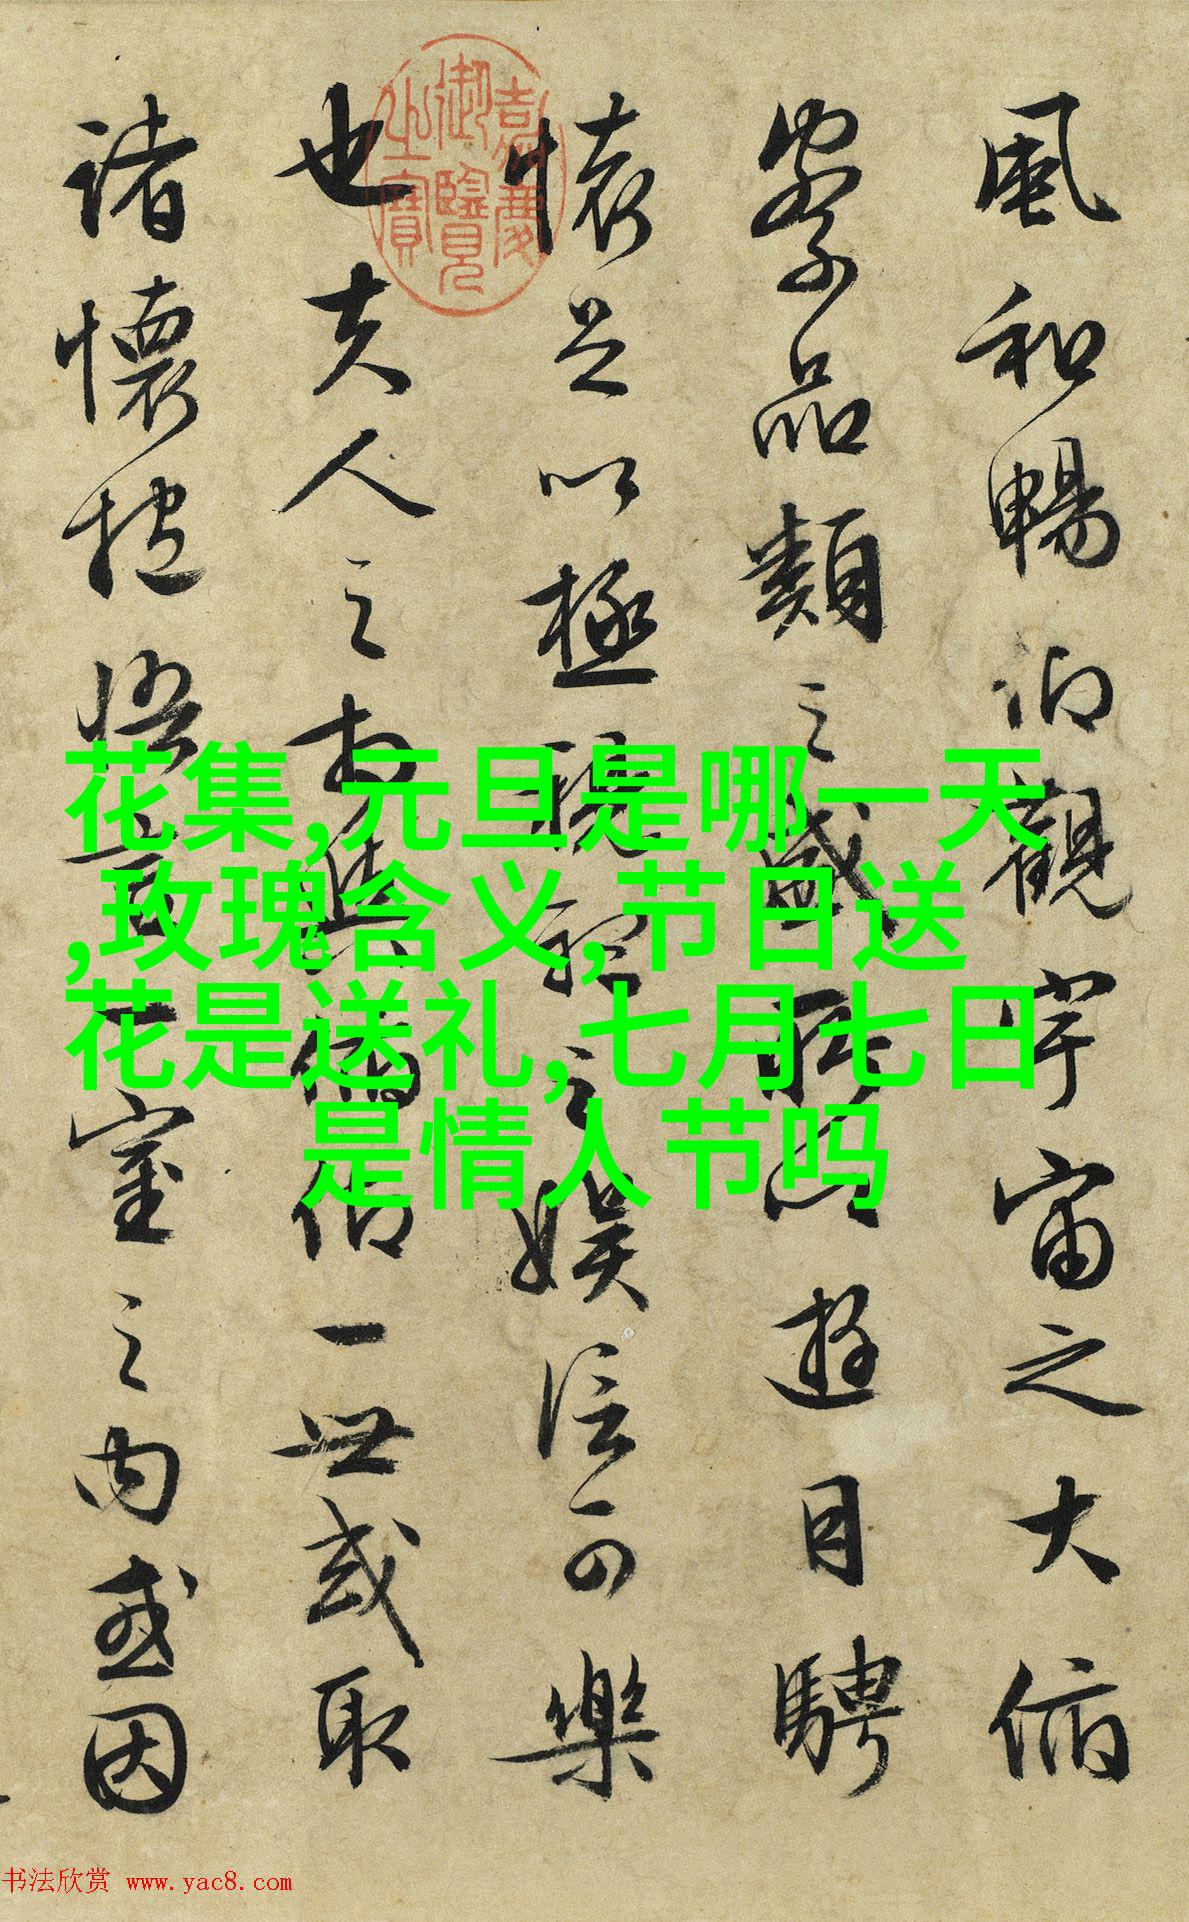 風和暢仰觀宇宙之大俯
察品類之盛所以遊目騁
懷足以極視聽之娛信可樂
也夫人之相與俯仰一世或取
諸懷抱悟言一室之內或因
嘉慶御覽之寶
花集,元旦是哪一天
,玫瑰含义,节日送
花是送礼,七月七日
是情人节吗
书法欣赏 www.yac8.com